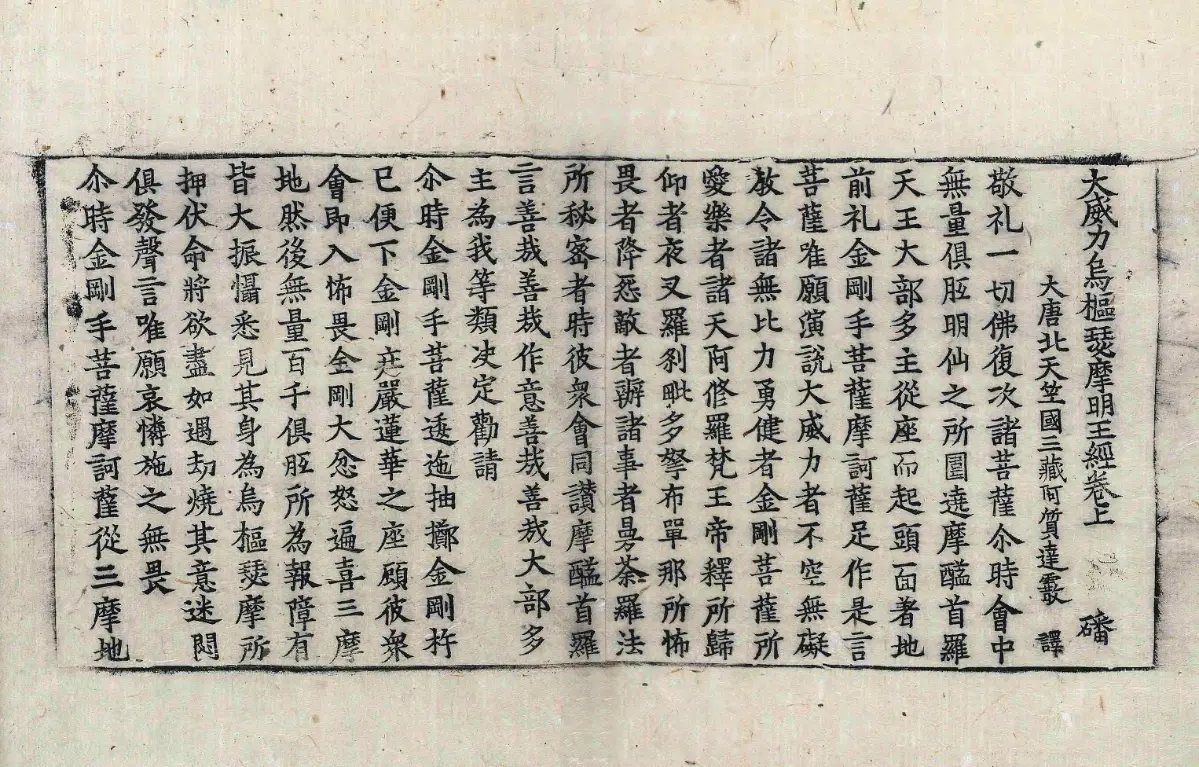 大威力烏樞瑟摩明王經卷上 磻
大唐北天竺國三藏阿質達霰 譯
敬礼一切佛復次諸菩薩尒時會中
無量俱胝明仙之所圍遶摩醯首羅
天王大部多主從座而起頭面著地
前礼金剛手菩薩摩訶薩足作是言
菩薩唯願演說大威力者不空無礙
教令諸無比力勇健者金剛菩薩所
愛樂者諸天阿修羅梵王帝釋所歸
仰者夜叉羅刹毗多拏布單那所怖
畏者降怨敵者辦諸事者曼荼羅法
所秘密者時彼衆會同讃摩醯首羅
言善哉善哉作意善哉善哉大部多
主為我等類决定勸請
尒時金剛手菩薩逶迤抽擲金剛杵
已便下金剛㢠嚴蓮華之座顧彼衆
會即入怖畏金剛大忿怒遍喜三摩
地然後無量百千俱胝所為報障有
皆大振懾悉見其身為烏樞瑟摩所
押伏命將欲盡如遇劫燒其意迷悶
俱發聲言唯願哀憐施之無畏
尒時金剛手菩薩摩訶薩從三摩地